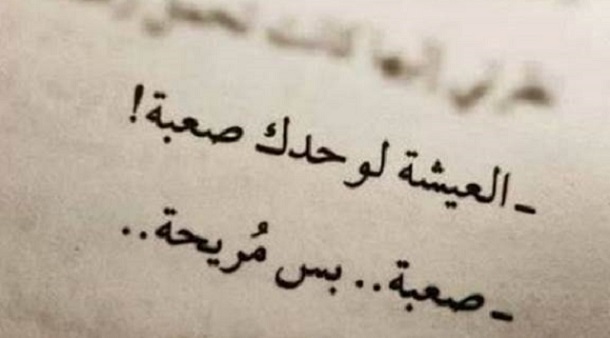 ـ العيشة لوحدك صعبة!
ـ صعبة.. بس مُريحة..